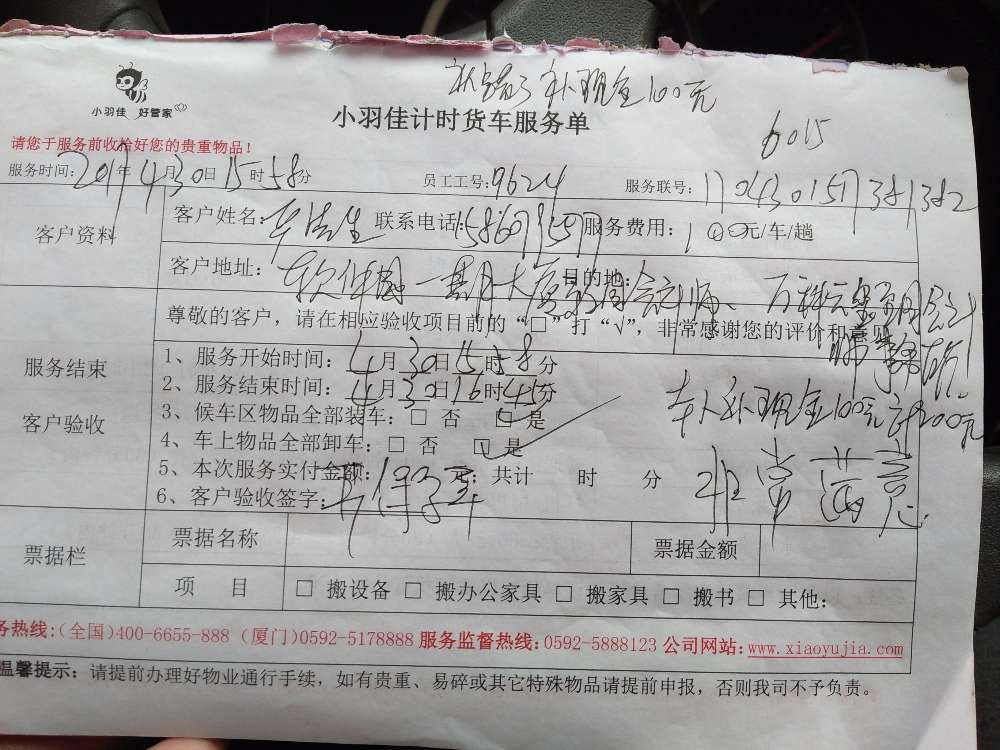 补现金100元
小羽佳 好管家
小羽佳计时货车服务单
6015
请您于服务前收检好您的贵重物品！
服务时间：2017年4月30日15时58分 员工工号：9624 服务联号：
客户资料
客户姓名： 联系电话： 服务费用：100元/车/趟
客户地址：软件园一期 目的地：
尊敬的客户，请在相应验收项目前的“□”打“√”，非常感谢您的评价和意见
服务结束
客户验收
1、服务开始时间：4月30日15时58分
2、服务结束时间：4月30日16时45分
3、候车区物品全部装车：□ 否 □ 是
车人补现金100元计200元
4、车上物品全部卸车：□ 否 □ 是
5、本次服务实付金额： 元；共计 时 分
非常满意
6、客户验收签字：
票据栏
票据名称 票据金额
项 目 □ 搬设备 □ 搬办公家具 □ 搬家具 □ 搬书 □ 其他：
务热线：（全国）400-6655-888（厦门）0592-5178888 服务监督热线：0592-5888123 公司网站：www.xiaoyujia.com
温馨提示：请提前办理好物业通行手续，如有贵重、易碎或其它特殊物品请提前申报，否则我司不予负责。